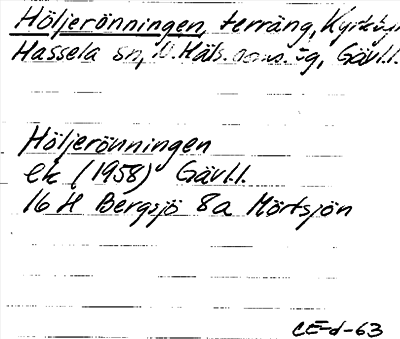 Höljerönningen, terräng, Kyrkbyn
Hassela sn, N. Häls. Gävl.l.
Höljerönningen
ek (1958) Gävl.l.
16 H Bergsjö 8a Mörtsjön
CE-d-63